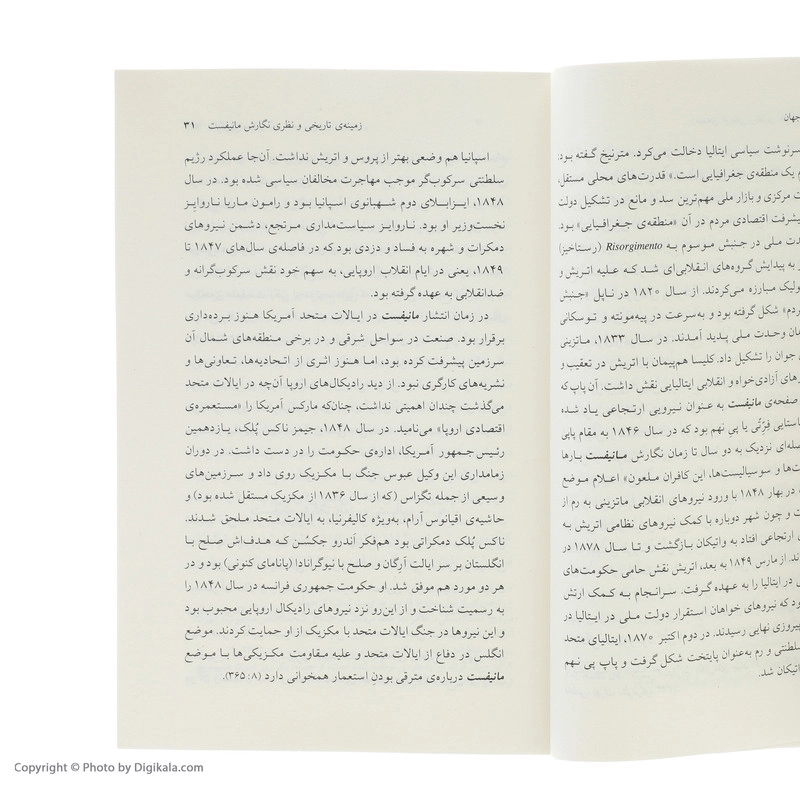 جهان
سرنوشت سیاسی ایتالیا دخالت می‌کرد. مترنیخ گفته بود:
یک منطقه‌ی جغرافیایی است.» قدرت‌های محلی مستقل،
مرکزی و بازار ملی مهم‌ترین سد و مانع در تشکیل دولت
پیشرفت اقتصادی مردم در آن «منطقه‌ی جغرافیایی» بود.
ملی در جنبش موسوم به Risorgimento (رستاخیز)
به پیدایش گروه‌های انقلابی‌ای شد که علیه اتریش و
مبارزه می‌کردند. از سال ۱۸۲۰ در ناپل «جنبش
شکل گرفته بود و به‌سرعت در پیه‌مونته و توسکانی
وحدت ملی پدید آمدند. در سال ۱۸۳۳، ماتزینی
جوان را تشکیل داد. کلیسا هم‌پیمان با اتریش در تعقیب و
آزادی‌خواه و انقلابی ایتالیایی نقش داشت. آن پاپ که
صفحه‌ی مانیفست به عنوان نیرویی ارتجاعی یاد شده
فِرتّی یا پیِ نهم بود که در سال ۱۸۴۶ به مقام پاپی
نزدیک به دو سال تا زمان نگارش مانیفست بارها
و سوسیالیست‌ها، این کافران ملعون» اعلام موضع
در بهار ۱۸۴۸ با ورود نیروهای انقلابی ماتزینی به رم از
و چون شهر دوباره با کمک نیروهای نظامی اتریش به
ارتجاعی افتاد به واتیکان بازگشت و تا سال ۱۸۷۸ در
از مارس ۱۸۴۹ به بعد، اتریش نقش حامی حکومت‌های
در ایتالیا را به عهده گرفت. سرانجام به کمک ارتش
که نیروهای خواهان استقرار دولت ملی در ایتالیا در
پیروزی نهایی رسیدند. در دوم اکتبر ۱۸۷۰، ایتالیای متحد
سلطنتی و رم به‌عنوان پایتخت شکل گرفت و پاپ پی نهم
شد.
زمینه‌ی تاریخی و نظری نگارش مانیفست ۳۱
اسپانیا هم وضعی بهتر از پروس و اتریش نداشت. آن‌جا عملکرد رژیم
سلطنتی سرکوب‌گر موجب مهاجرت مخالفان سیاسی شده بود. در سال
۱۸۴۸، ایزابلای دوم شهبانوی اسپانیا بود و رامون ماریا ناروایز
نخست‌وزیر او بود. ناروایز سیاست‌مداری مرتجع، دشمن نیروهای
دمکرات و شهره به فساد و دزدی بود که در فاصله‌ی سال‌های ۱۸۴۷ تا
۱۸۴۹، یعنی در ایام انقلاب اروپایی، به سهم خود نقش سرکوب‌گرانه و
ضدانقلابی به عهده گرفته بود.
در زمان انتشار مانیفست در ایالات متحد آمریکا هنوز برده‌داری
برقرار بود. صنعت در سواحل شرقی و در برخی منطقه‌های شمال آن
سرزمین پیشرفت کرده بود، اما هنوز اثری از اتحادیه‌ها، تعاونی‌ها و
نشریه‌های کارگری نبود. از دید رادیکال‌های اروپا آن‌چه در ایالات متحد
می‌گذشت چندان اهمیتی نداشت، چنان‌که مارکس آمریکا را «مستعمره‌ی
اقتصادی اروپا» می‌نامید. در سال ۱۸۴۸، جیمز ناکس پُلک، یازدهمین
رئیس‌جمهور آمریکا، اداره‌ی حکومت را در دست داشت. در دوران
زمامداری این وکیل عبوس جنگ با مکزیک روی داد و سرزمین‌های
وسیعی از جمله تگزاس (که از سال ۱۸۳۶ از مکزیک مستقل شده بود) و
حاشیه‌ی اقیانوس آرام، به‌ویژه کالیفرنیا، به ایالات متحد ملحق شدند.
ناکس پُلک دمکراتی بود هم‌فکر اَندرو جکسُن که هدف‌اش صلح با
انگلستان بر سر ایالت اُرِگان و صلح با نیوگرانادا (پانامای کنونی) بود و در
هر دو مورد هم موفق شد. او حکومت جمهوری فرانسه در سال ۱۸۴۸ را
به رسمیت شناخت و از این‌رو نزد نیروهای رادیکال اروپایی محبوب بود
و این نیروها در جنگ ایالات متحد با مکزیک از او حمایت کردند. موضع
انگلس در دفاع از ایالات متحد و علیه مقاومت مکزیکی‌ها با موضع
مانیفست درباره‌ی مترقی بودنِ استعمار همخوانی دارد (۸: ۳۶۵).
Copyright © Photo by Digikala.com